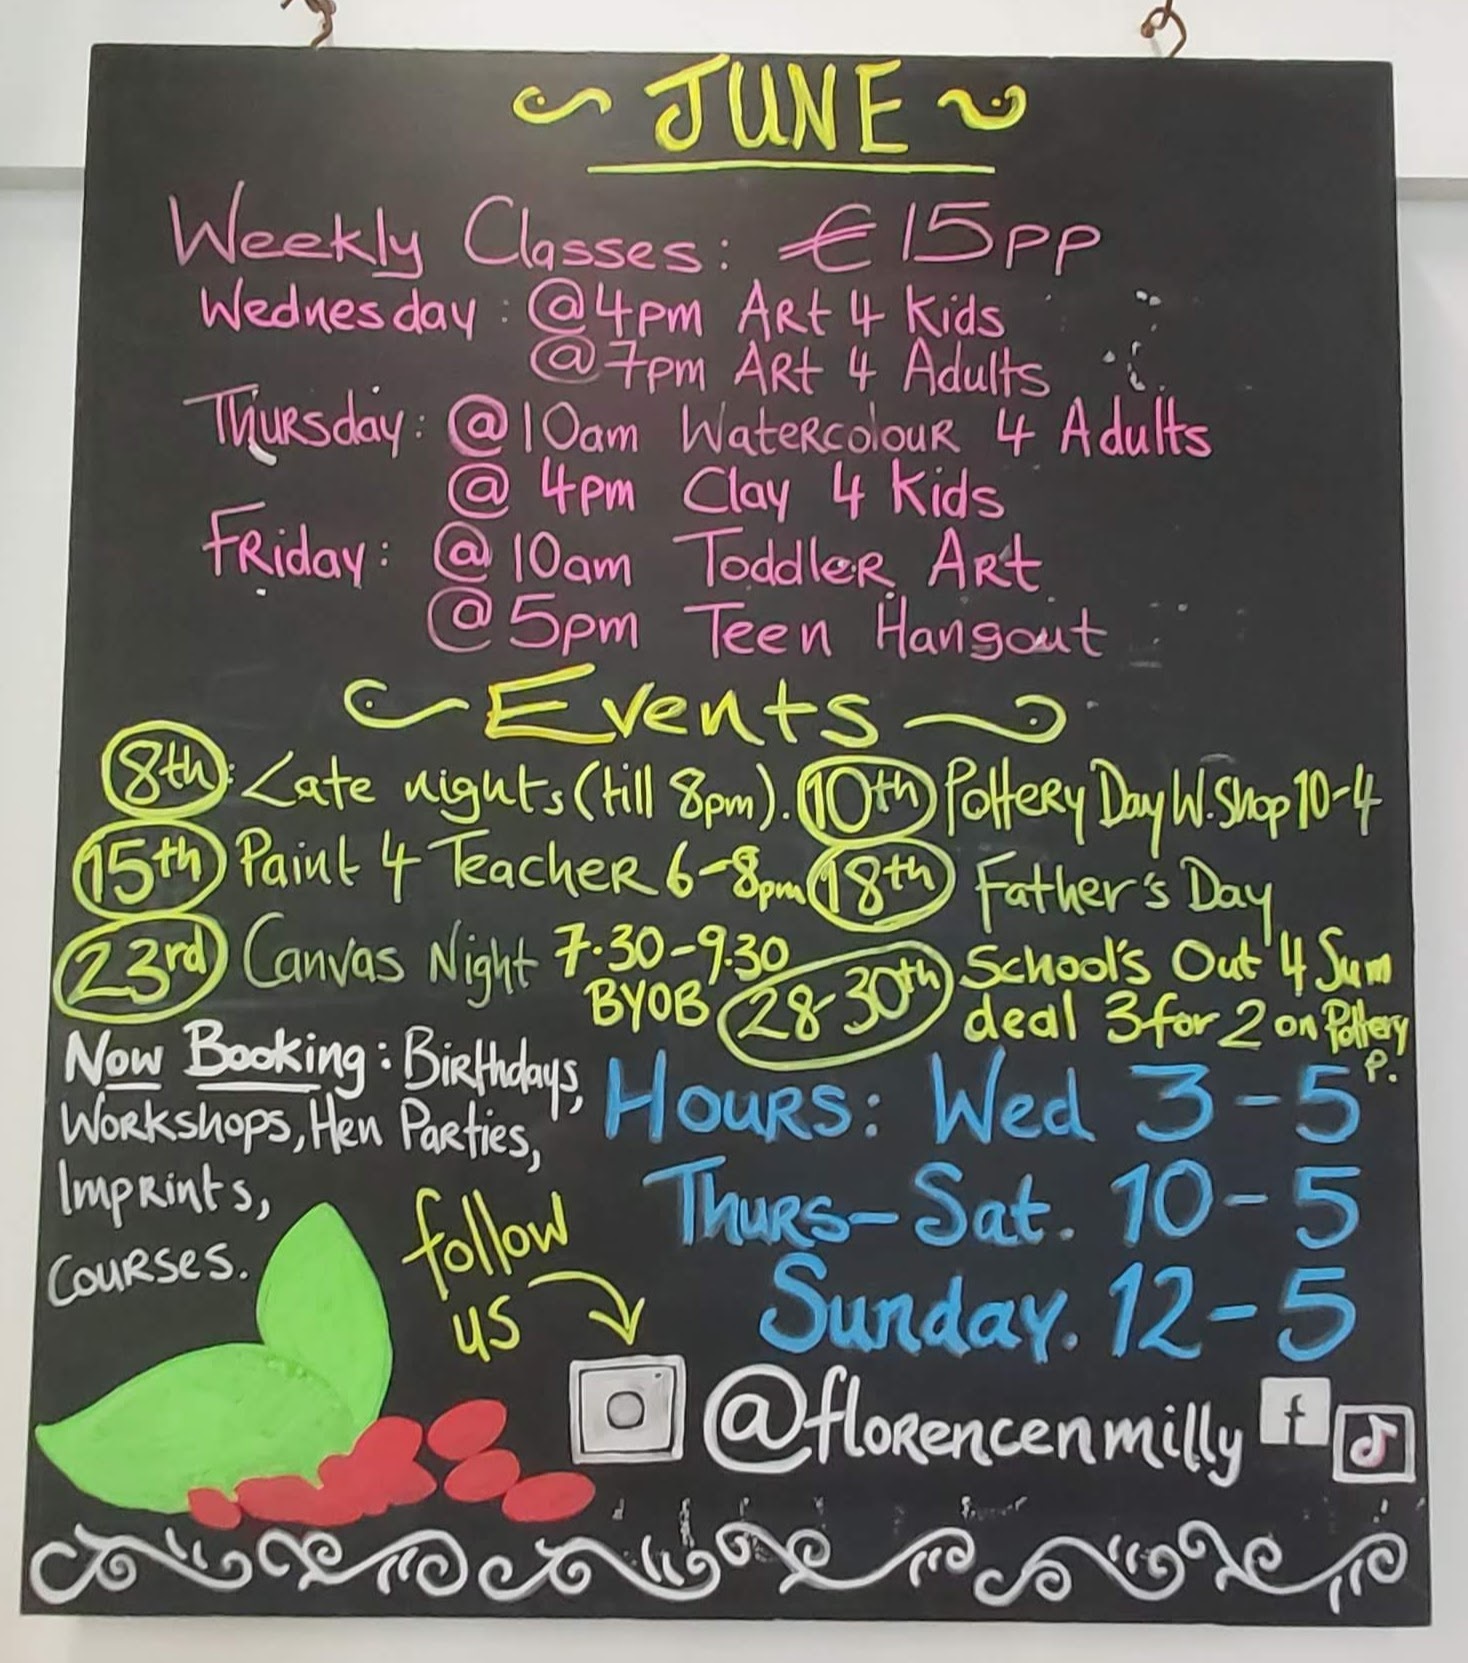 JUNE
Weekly Classes: €15pp
Wednesday: @4pm Art 4 Kids
@7pm Art 4 Adults
Thursday: @10am Watercolour 4 Adults
@ 4pm Clay 4 Kids
Friday: @ 10am Toddler Art
@5pm Teen Hangout
Events
8th: Late nights (till 8pm).
15th Paint 4 Teacher 6-8pm
23rd Canvas Night 7.30-9.30
BYOB
10th Pottery Day W.Shop 10-4
18th Father's Day
28-30th School's Out 4 Sum
deal 3 for 2 on Pottery
P.
Now Booking: Birthdays,
Workshops, Hen Parties,
Imprints,
Courses.
Hours: Wed 3-5
Thurs-Sat. 10-5
Sunday. 12-5
follow
us
@florencenmilly f